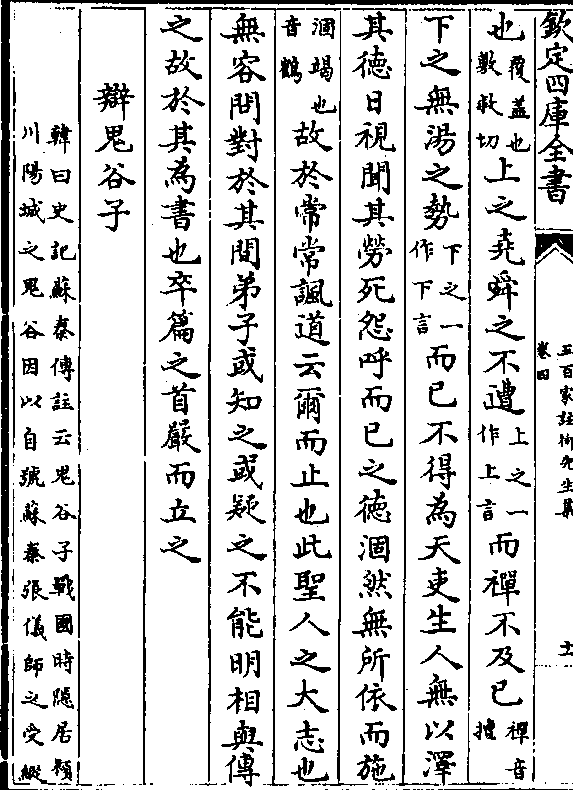 欽定四庫全書
五百家註柳先生集
卷四
士
也覆蓋也敷救切上之堯舜之不遭上之一作上言而禪不及已禪音擅
下之無湯之勢下之一作下言而已不得為天吏生人無以澤
其德日視聞其勞死怨呼而已之徳涸然無所依而施
涸竭也音鶴故於常常諷道云爾而止也此聖人之大志也
無容問對於其間弟子或知之或疑之不能明相與傳
之故於其為書也卒篇之首嚴而立之
辯鬼谷子
韓曰史記蘇秦傳註云鬼谷子戰國時隠居潁
川陽城之鬼谷因以自號蘇秦張儀師之受縱